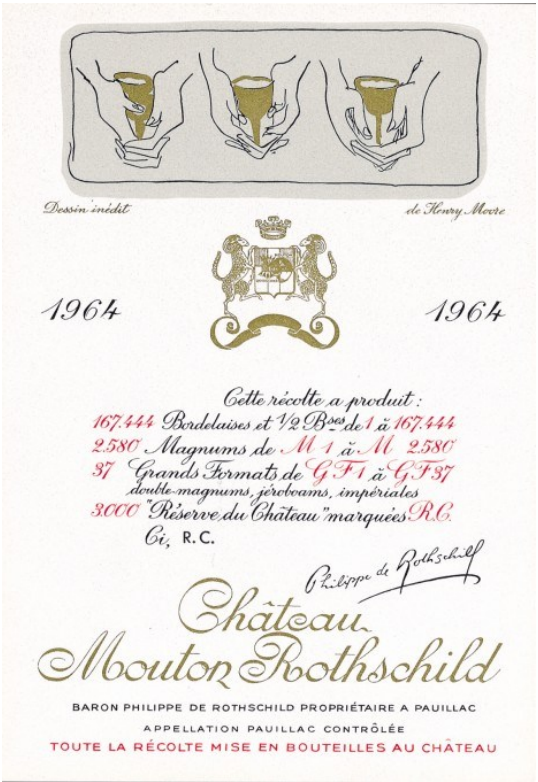 Dessin inédit de Henry Moore
1964 1964
Cette récolte a produit :
167.444 Bordelaises et 1/2 Bses de 1 à 167.444
2.580 Magnums de M 1 à M 2580
37 Grands Formats de GF1 à GF37
double-magnums, jéroboams, impériales
3.000 "Réserve du Château" marquées R.C.
Ci, R.C.
Philippe de Rothschild
Château
Mouton Rothschild
BARON PHILIPPE DE ROTHSCHILD PROPRIÉTAIRE A PAUILLAC
APPELLATION PAUILLAC CONTRÔLÉE
TOUTE LA RÉCOLTE MISE EN BOUTEILLES AU CHÂTEAU